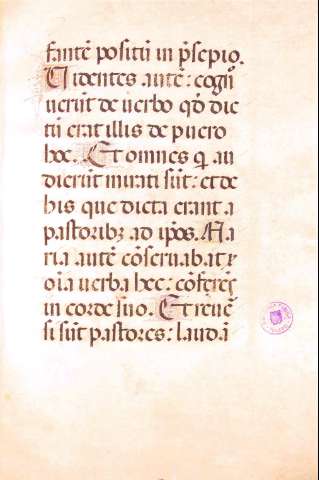 fantē positū in p̄sepio.
Uidentes autē: cogn̄
uerūt de uerbo qđ dic
tū erat illis de puero
hoc. Et omnes q̄ au
dierūt mirati sūt: et de
his que dicta erant a
pastoribꝫ ad ip̄os. Ma
ria autē cōseruabat
oīa uerba hec: cōferēs
in corde suo. Et reuē
si sūt pastores: laudā